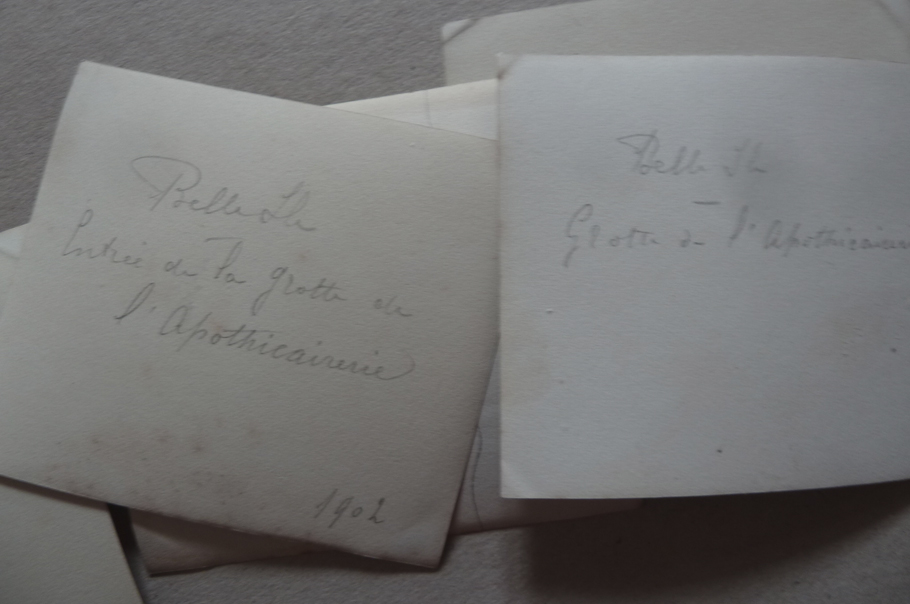 Belle Ile
Entrée de la grotte de
l'Apothicairerie
1902
Belle Ile
Grotte de l'Apothicairerie